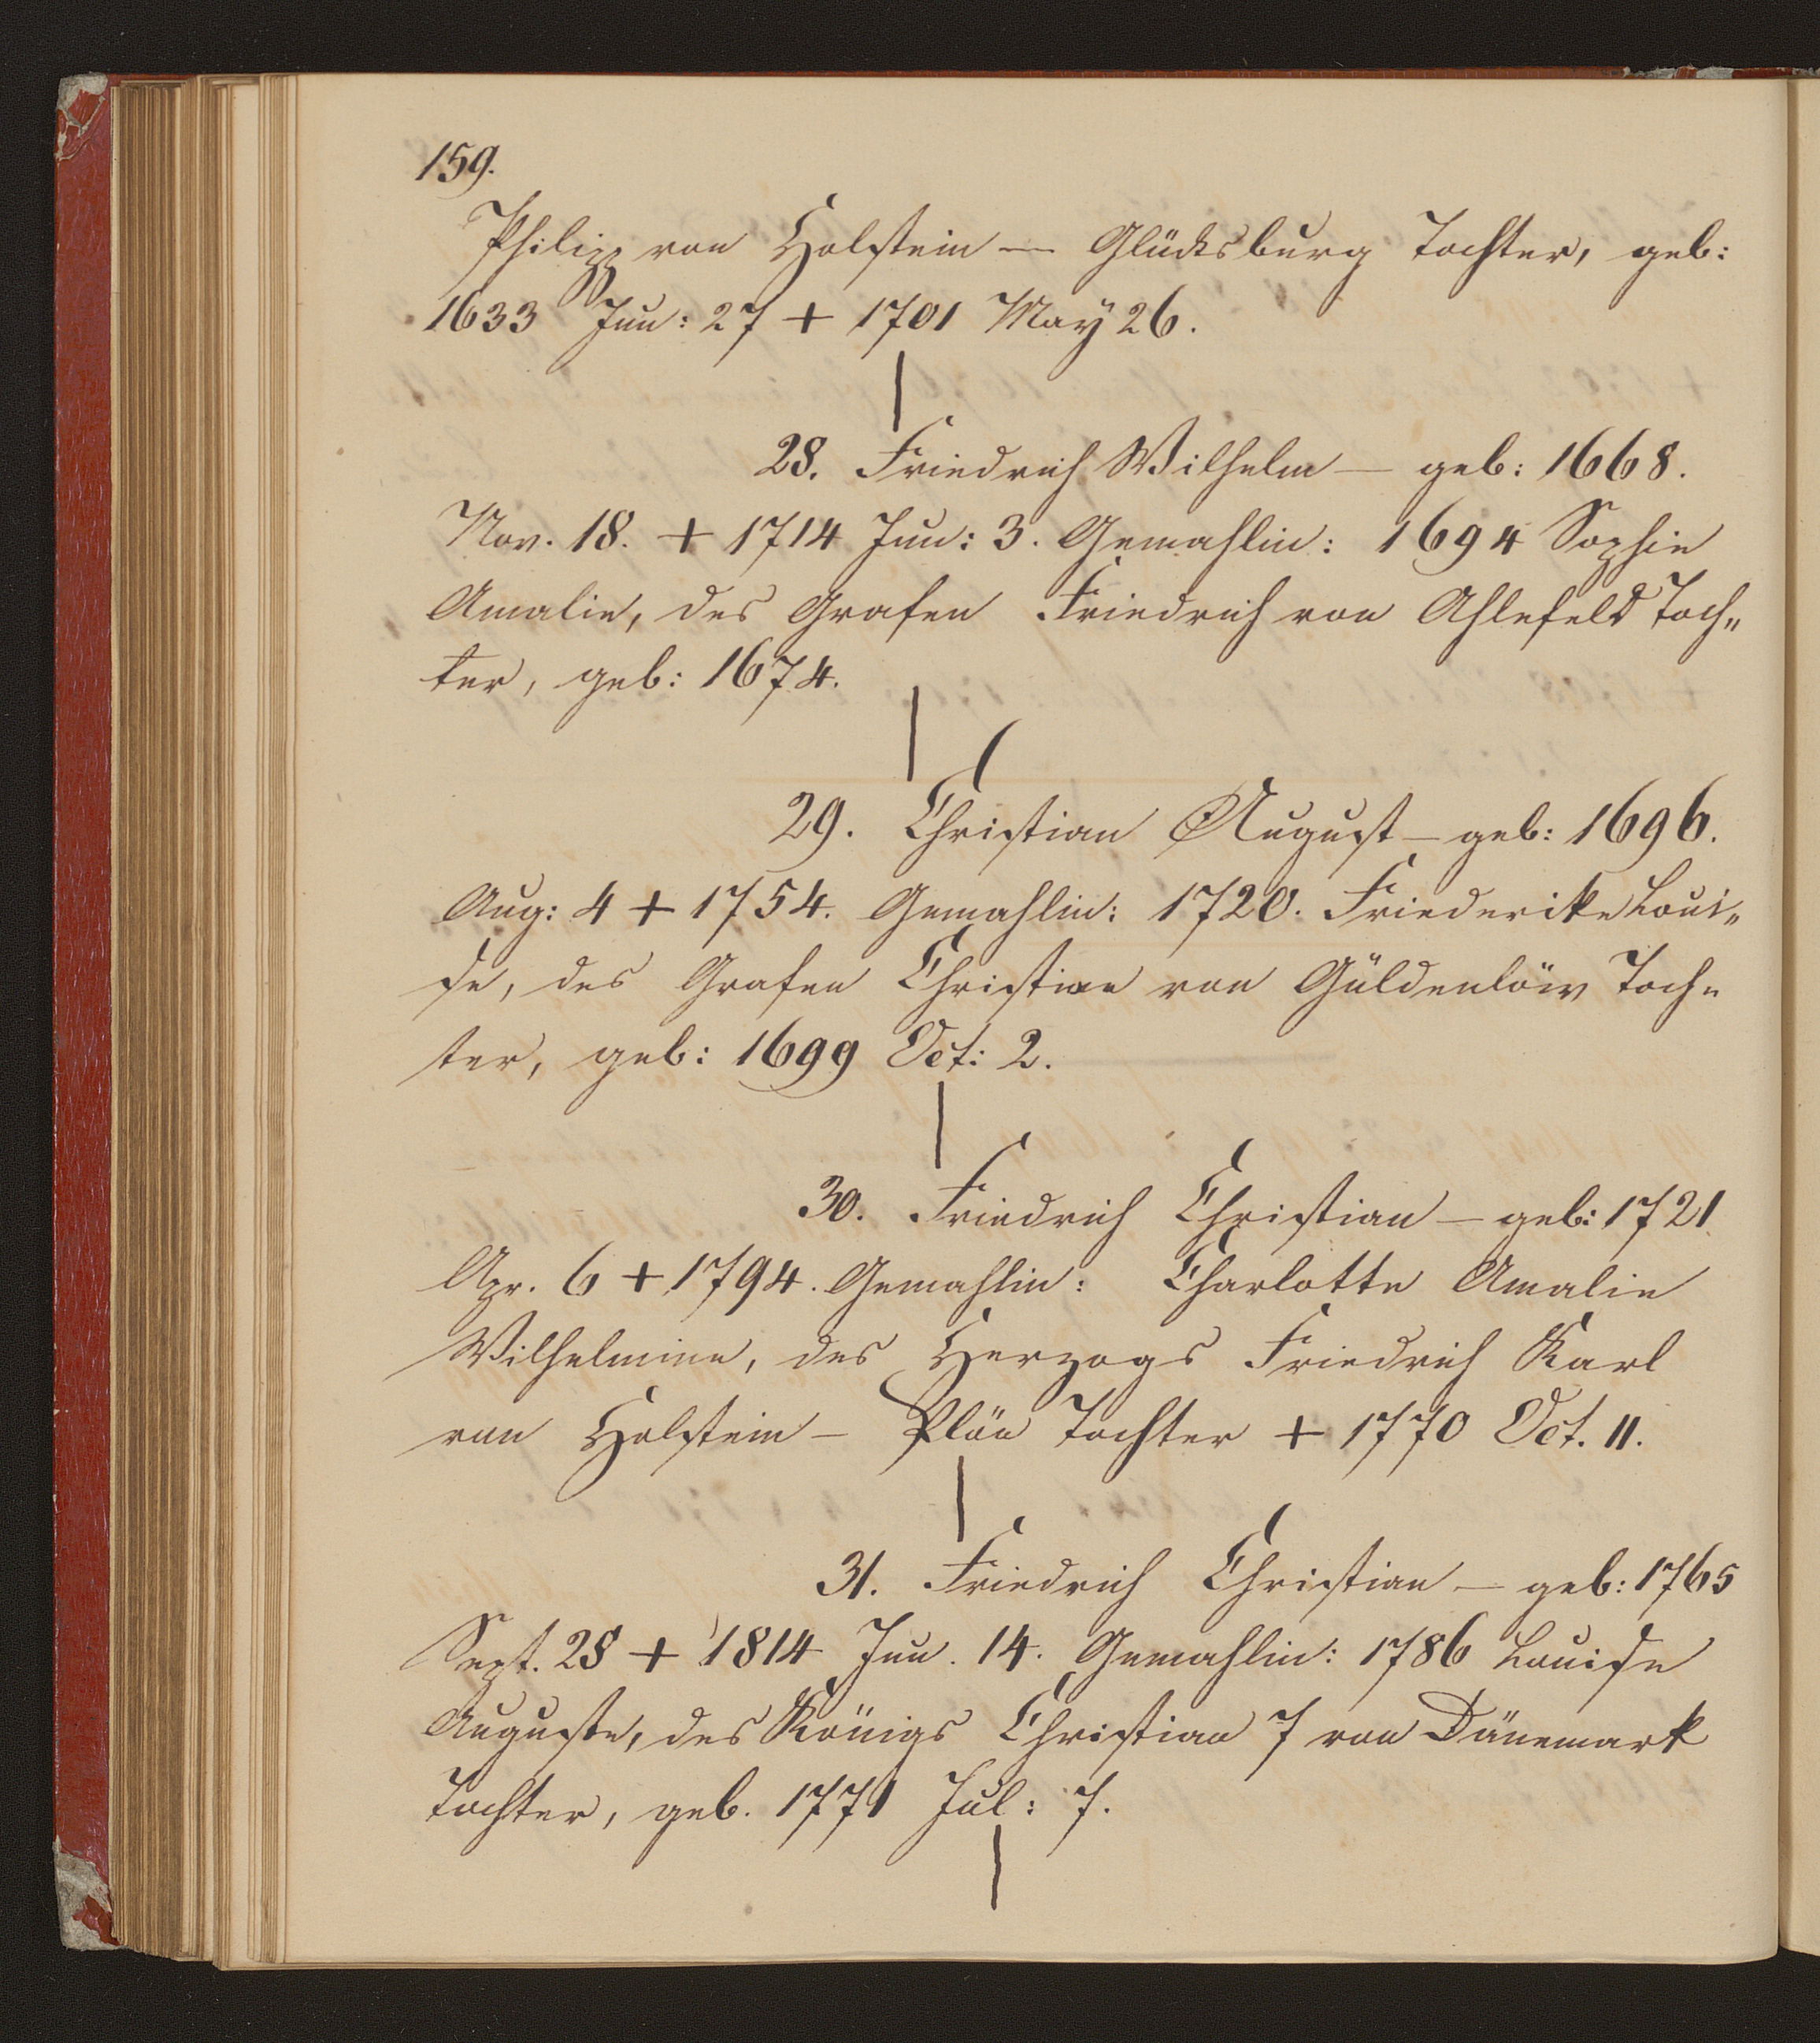 159.
Philipp von Holstein — Glücksburg Tochter, geb:
1633 Jun: 27 + 1701 May 26.
28. Friedrich Wilhelm — geb: 1668.
Nov. 18. + 1714 Jun: 3. Gemahlin: 1694 Sophie
Amalie, des Grafen Friedrich von Ahlefeld Toch„
ter, geb: 1674.
29. Christian August — geb: 1696.
Aug: 4 + 1754. Gemahlin: 1720. Friederike Loui„
se, des Grafen Christian von Güldenlöw Toch„
ter, geb: 1699 Oct: 2.
30. Friedrich Christian — geb: 1721
Apr. 6 + 1794. Gemahlin: Charlotte Amalie
Wilhelmine, des Herzogs Friedrich Karl
von Holstein — Plön Tochter + 1770 Oct. 11.
31. Friedrich Christian — geb: 1765
Sept. 28 + 1814 Jun. 14. Gemahlin: 1786 Louise
Auguste, des Königs Christian 7 von Dänemark
Tochter, geb. 1771 Jul: 7.